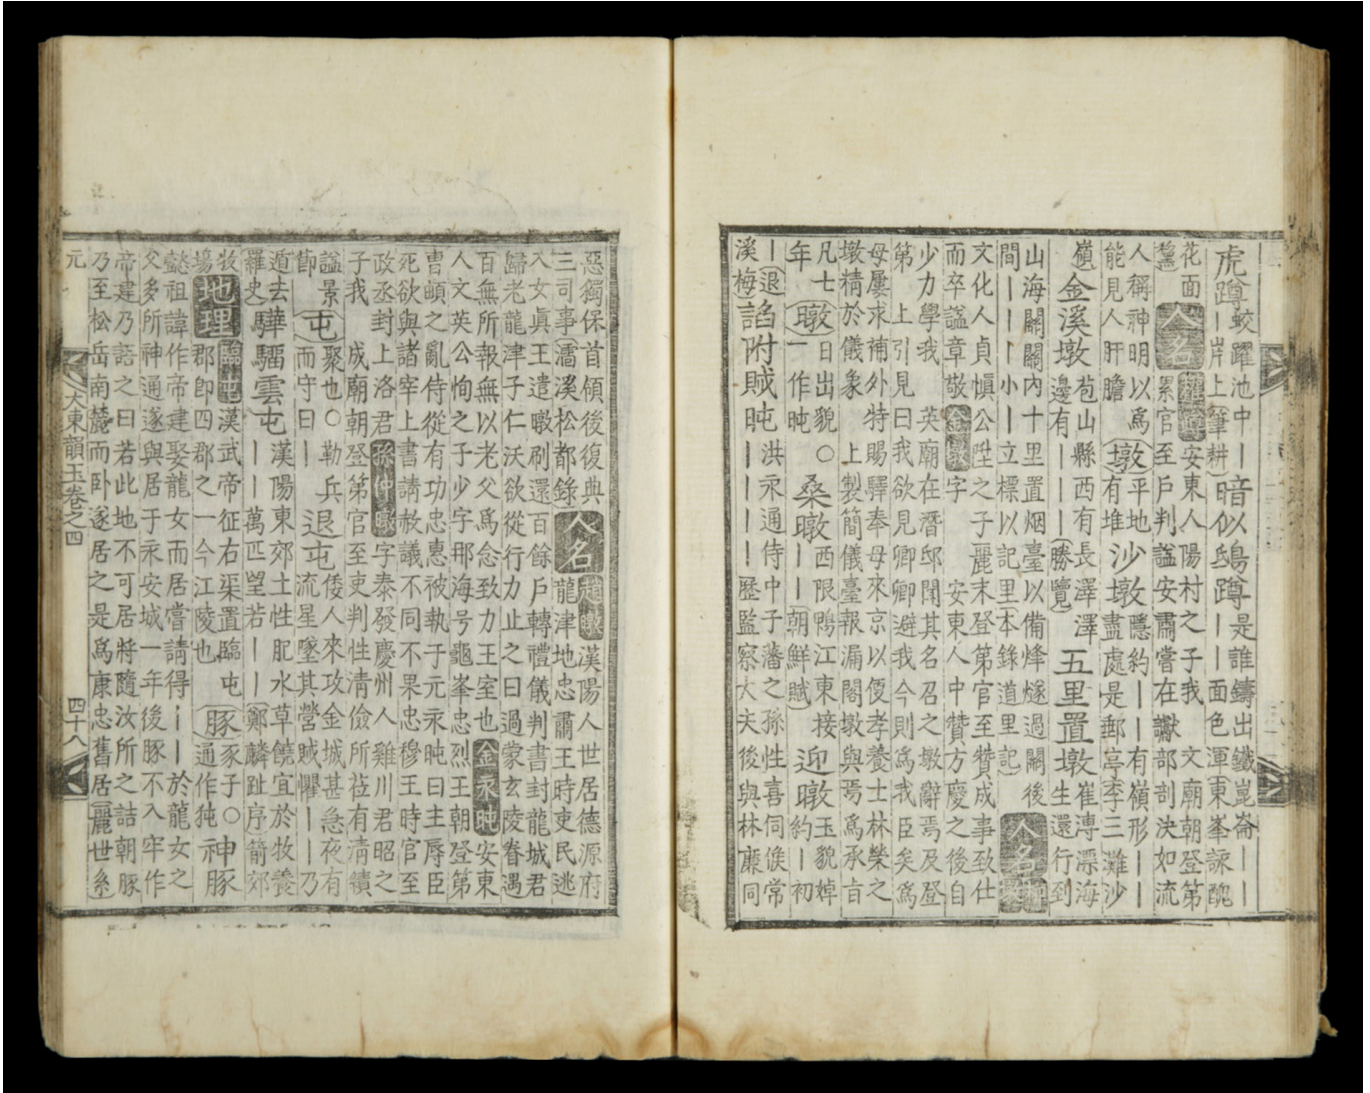 虎蹲
蛟躍池中丨
丨岸上筆耕
暗似鴟蹲
是誰鑄出鐵崑崙丨丨
丨丨面色渾東峯詠醜
花面
人名
權蹲
安東人陽村之子我 文廟朝登第
累官至戶判諡安肅嘗在讞部剖決如流
人稱神明以爲
能見人肝膽
墩
平地
有堆
沙墩
隱約丨丨有嶺形丨丨
盡處是郵亭李三灘沙
嶺
金溪墩
苞山縣西有長澤澤
邊有丨丨丨勝覽
五里置墩
崔溥漂海
生還行到
山海關關內十里置烟臺以備烽燧過關後
間丨丨丨小丨立標以記里本錄道里記
人名
文化人貞愼公陞之子麗末登第官至贊成事致仕
而卒諡章敬
金墩
字 安東人中贊方慶之後自
少力學我 英廟在潛邸聞其名召之墩辭焉及登
第 上引見曰我欲見卿卿避我今則爲我臣矣爲
母屢求補外特賜驛奉母來京以便孝養士林榮之
墩精於儀象 上製簡儀臺報漏閣墩與焉爲承旨
凡七
年
暾
日出貌○
一作旽
桑暾
西限鴨江東接
丨丨朝鮮賦
迎暾
玉貌婥
約丨初
丨退
溪梅
諂附賊旽
洪永通侍中子藩之孫性喜伺候常
丨丨丨丨歷監察大夫後與林廉同
惡獨保首領後復典
三司事濡溪松都錄
人名
趙暾
漢陽人世居德源府
龍津地忠肅王時吏民逃
入女眞王遣暾刷還百餘戶轉禮儀判書封龍城君
歸老龍津子仁沃欲從行力止之曰過蒙玄陵眷遇
百無所報無以老父爲念致力王室也
金永旽
安東
人文英公恂之子少字那海号龜峯忠烈王朝登第
曹頔之亂侍從有功忠惠被執于元永旽曰主辱臣
死欲與諸宰上書請赦議不同不果忠穆王時官至
政丞封上洛君
孫仲暾
字泰發慶州人雞川君昭之
子我 成廟朝登第官至吏判性清儉所莅有清績
諡景
節
屯
聚也○勒兵
而守曰丨
退屯
倭人來攻金城甚急夜有
流星墜其營賊懼丨丨乃
遁去
羅史
驊騮雲屯
漢陽東郊土性肥水草饒宜於牧養
丨丨萬匹望若丨丨鄭麟趾序箭郊
牧
場
地理
臨屯
漢武帝征右渠置臨屯
郡卽四郡之一今江陵也
豚
豕子○
通作㹠
神豚
懿祖諱作帝建娶龍女而居嘗請得丨丨於龍女之
父多所神通遂與居于永安城一年後豚不入牢作
帝建乃語之曰若此地不可居將隨汝所之詰朝豚
乃至松岳南麓而卧遂居之是爲康忠舊居麗世系
元
大東韻玉卷之四
四十八